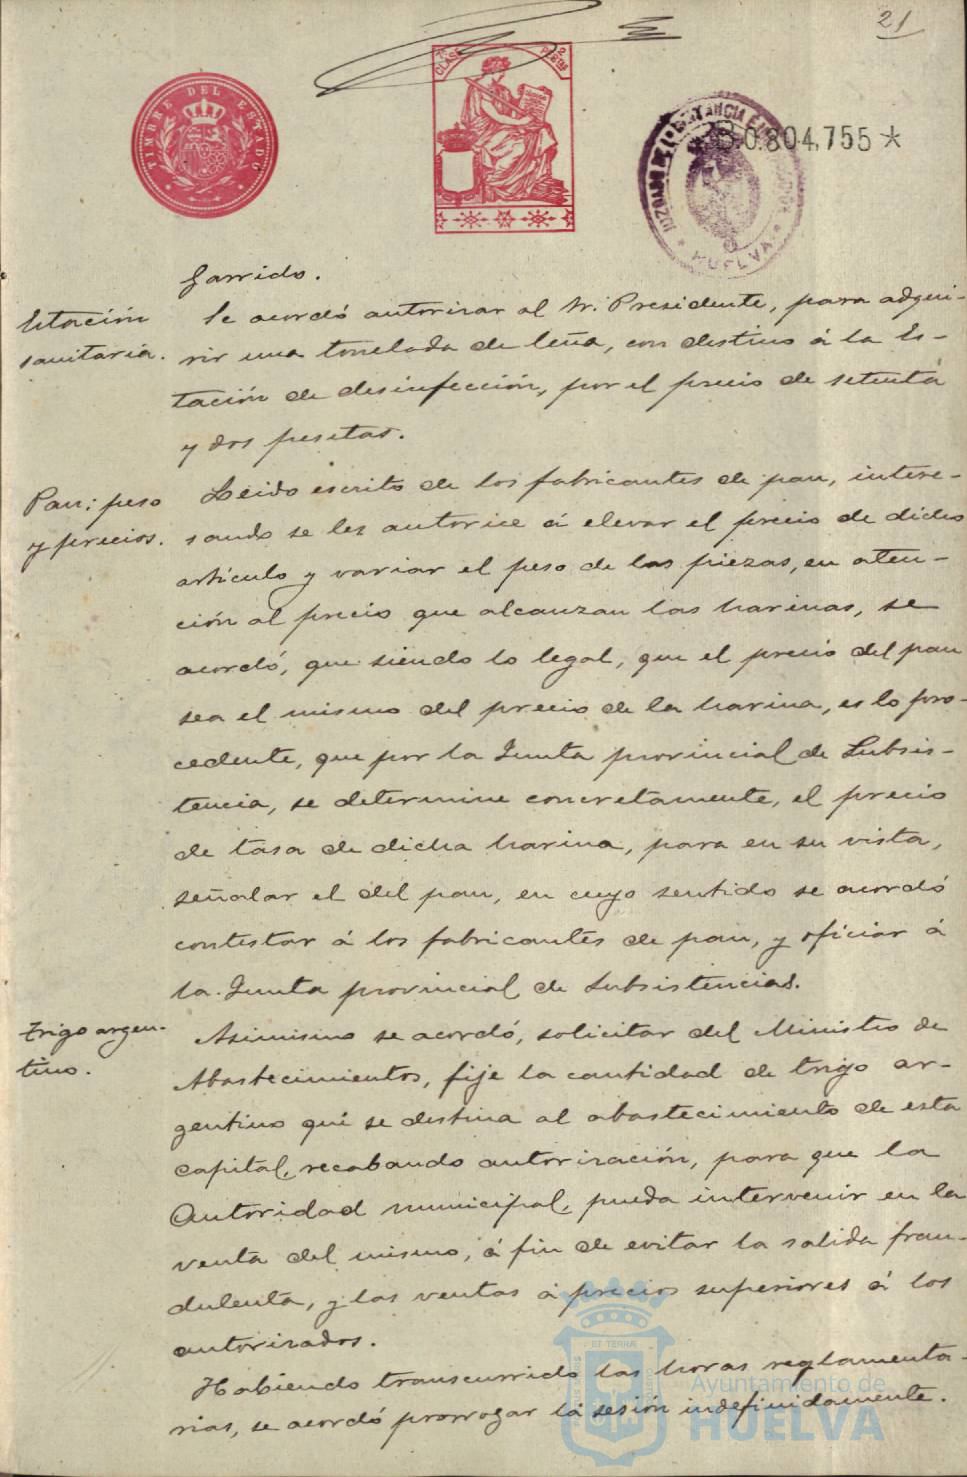 21
TIMBRE DEL ESTADO
CLASE
2 PESETAS
B.0.804,755*
JUZGADO DE 1ª INSTANCIA E INSTRUCCION
* HUELVA *
Garrido.
Estación
sanitaria.
Se acordó autorizar al Sr. Presidente, para adqui-
rir una tonelada de leña, con destino á la Es-
tación de desinfección, por el precio de setenta
y dos pesetas.
Pan; peso
y precios.
Leido escrito de los fabricantes de pan, intere-
sando se les autorice á elevar el precio de dicho
artículo y variar el peso de las piezas, en aten-
ción al precio que alcanzan las harinas, se
acordó, que siendo lo legal, que el precio del pan
sea el mismo del precio de la harina, es lo pro-
cedente, que por la Junta provincial de Subsis-
tencia, se determine concretamente, el precio
de tasa de dicha harina, para en su vista,
señalar el del pan, en cuyo sentido se acordó
contestar á los fabricantes de pan, y oficiar á
la Junta provincial de Subsistencias.
Trigo argen-
tino.
Asimismo se acordó, solicitar del Ministro de
Abastecimientos, fije la cantidad de trigo ar-
gentino que se destina al abastecimiento de esta
capital, recabando autorización, para que la
Autoridad municipal, pueda intervenir en la
venta del mismo, á fin de evitar la salida frau-
dulenta, y las ventas á precios superiores á los
autorizados.
Habiendo transcurrido las horas reglamenta-
rias, se acordó prorrogar la sesión indefinidamente.
Ayuntamiento de
HUELVA